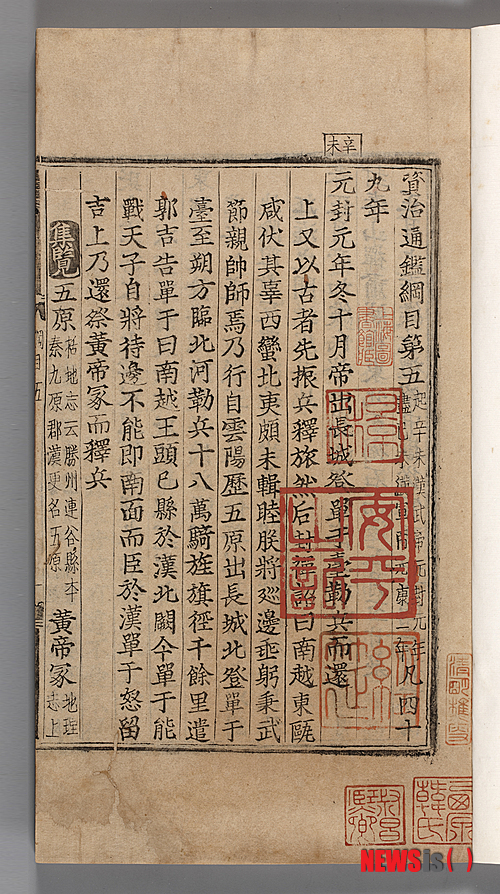 辛未
資治通鑑綱目第五 起辛未漢武帝元封元年 漢宣帝元康二年 凡四十
九年
元封元年冬十月帝出長城登單于臺勒兵而還
上又以古者先振兵釋旅然后封禪詔曰南越東甌
咸伏其辜西蠻北夷頗未輯睦朕將廵邊垂躬秉武
節親帥師焉乃行自雲陽歷五原出長城北登單于
臺至朔方臨北河勒兵十八萬騎旌旗徑千餘里遣
郭吉告單于曰南越王頭已縣於漢北闕今單于能
戰天子自將待邊不能即南面而臣於漢單于怒留
吉上乃還祭黃帝冢而釋兵
集覽 五原 括地志云勝州連谷縣本秦九原郡漢更名五原 黃帝冢 地理志上
NEWSis( )